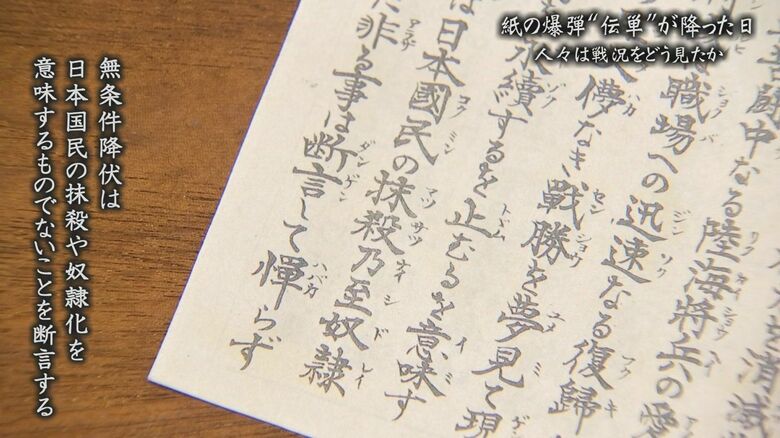 紙の爆弾“伝単”が降った日
人々は戦況をどう見たか
消滅
中なる陸海將兵の愛
職場への迅速なる復歸
儚なき戰勝を夢見て現
永續するを止むるを意味す
は日本國民の抹殺乃至奴隷
非る事は断言して憚らず
無条件降伏は
日本国民の抹殺や奴隷化を
意味するものでないことを断言する